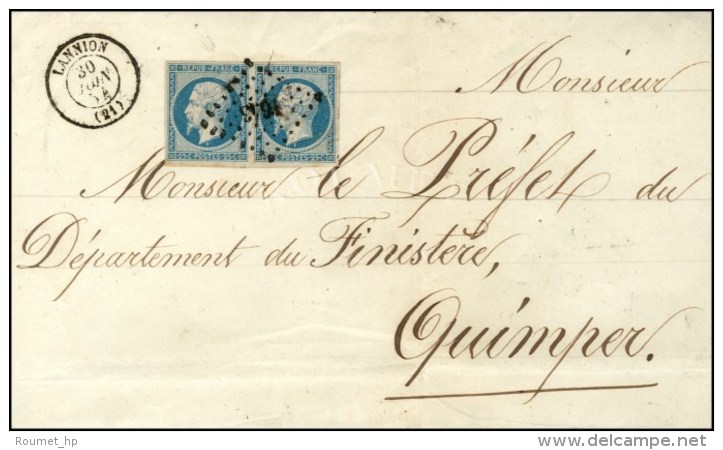 LANNION
30
JUIN
54
(21)
REPUB. FRANC.
REPUB. FRANC.
25 C. POSTES. 25 C.
25 C. POSTES. 25 C.
Monsieur
Monsieur le Préfet du
Département du Finistère,
Quimper.
Roumet_hp
delcampe.net